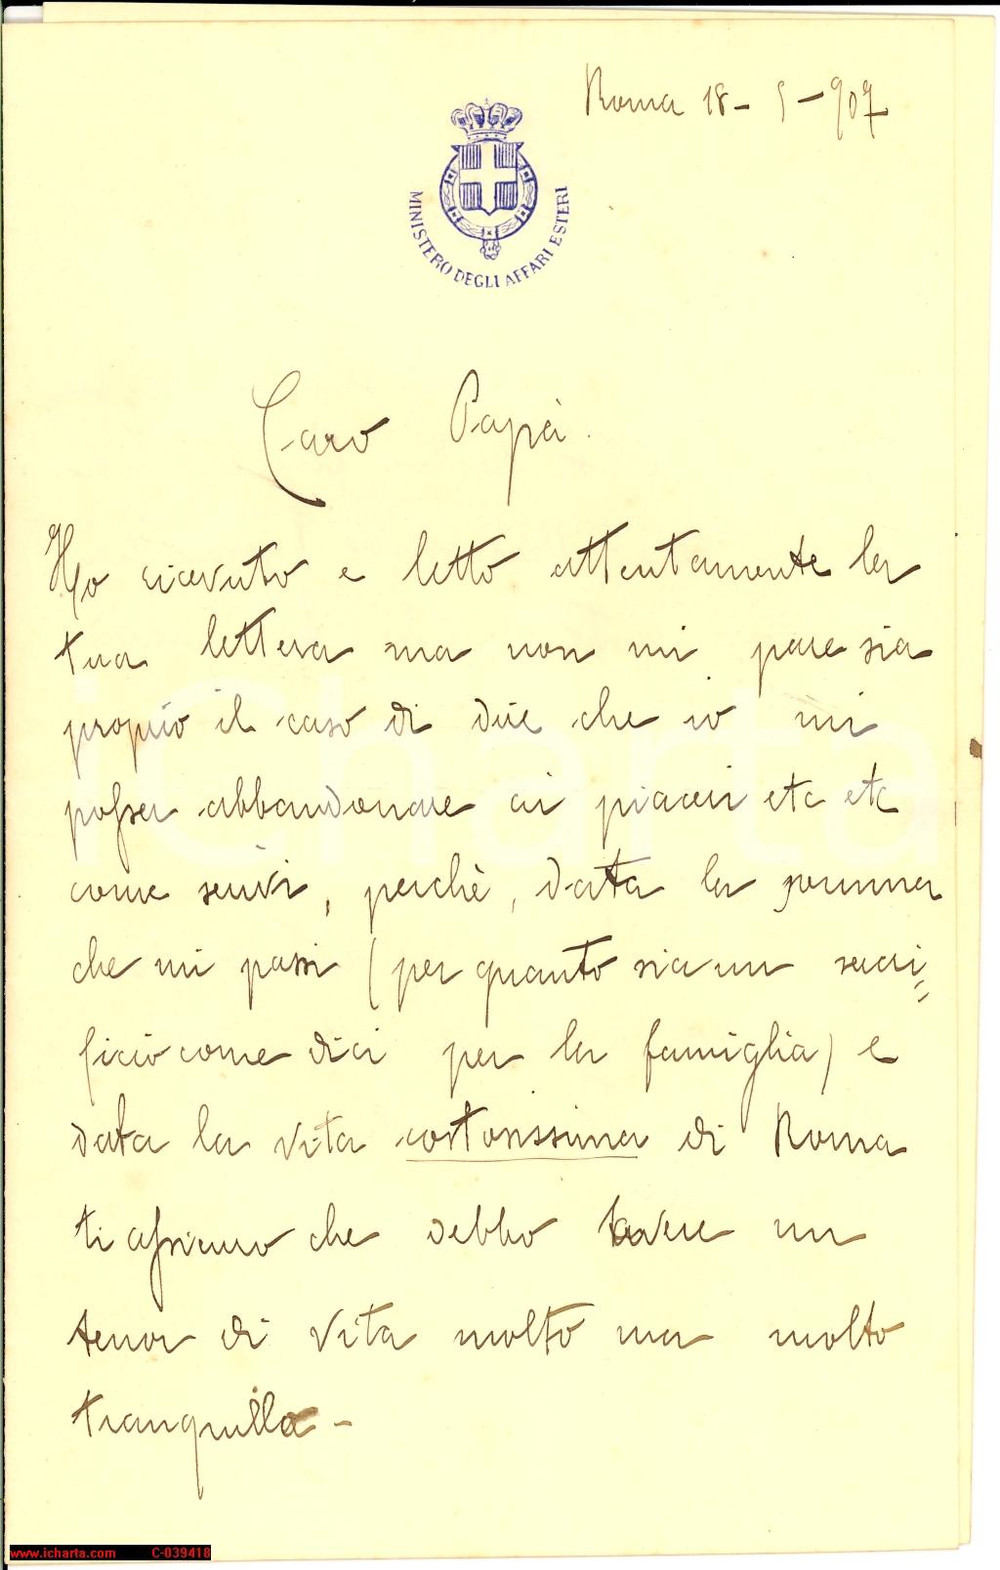 Roma 18 - 5 - 907
MINISTERO DEGLI AFFARI ESTERI
Caro Papà.
Ho ricevuto e letto attentamente la
tua lettera ma non mi pare sia
proprio il caso di dire che io mi
possa abbandonare ai piaceri etc etc
come scrivi, perchè, data la somma
che mi passi (per quanto sia un sacri=
ficio come dici per la famiglia) e
data la vita costosissima di Roma
ti assicuro che debbo avere un
tenor di vita molto ma molto
tranquilla -
www.icharta.com C-039418
iCharta